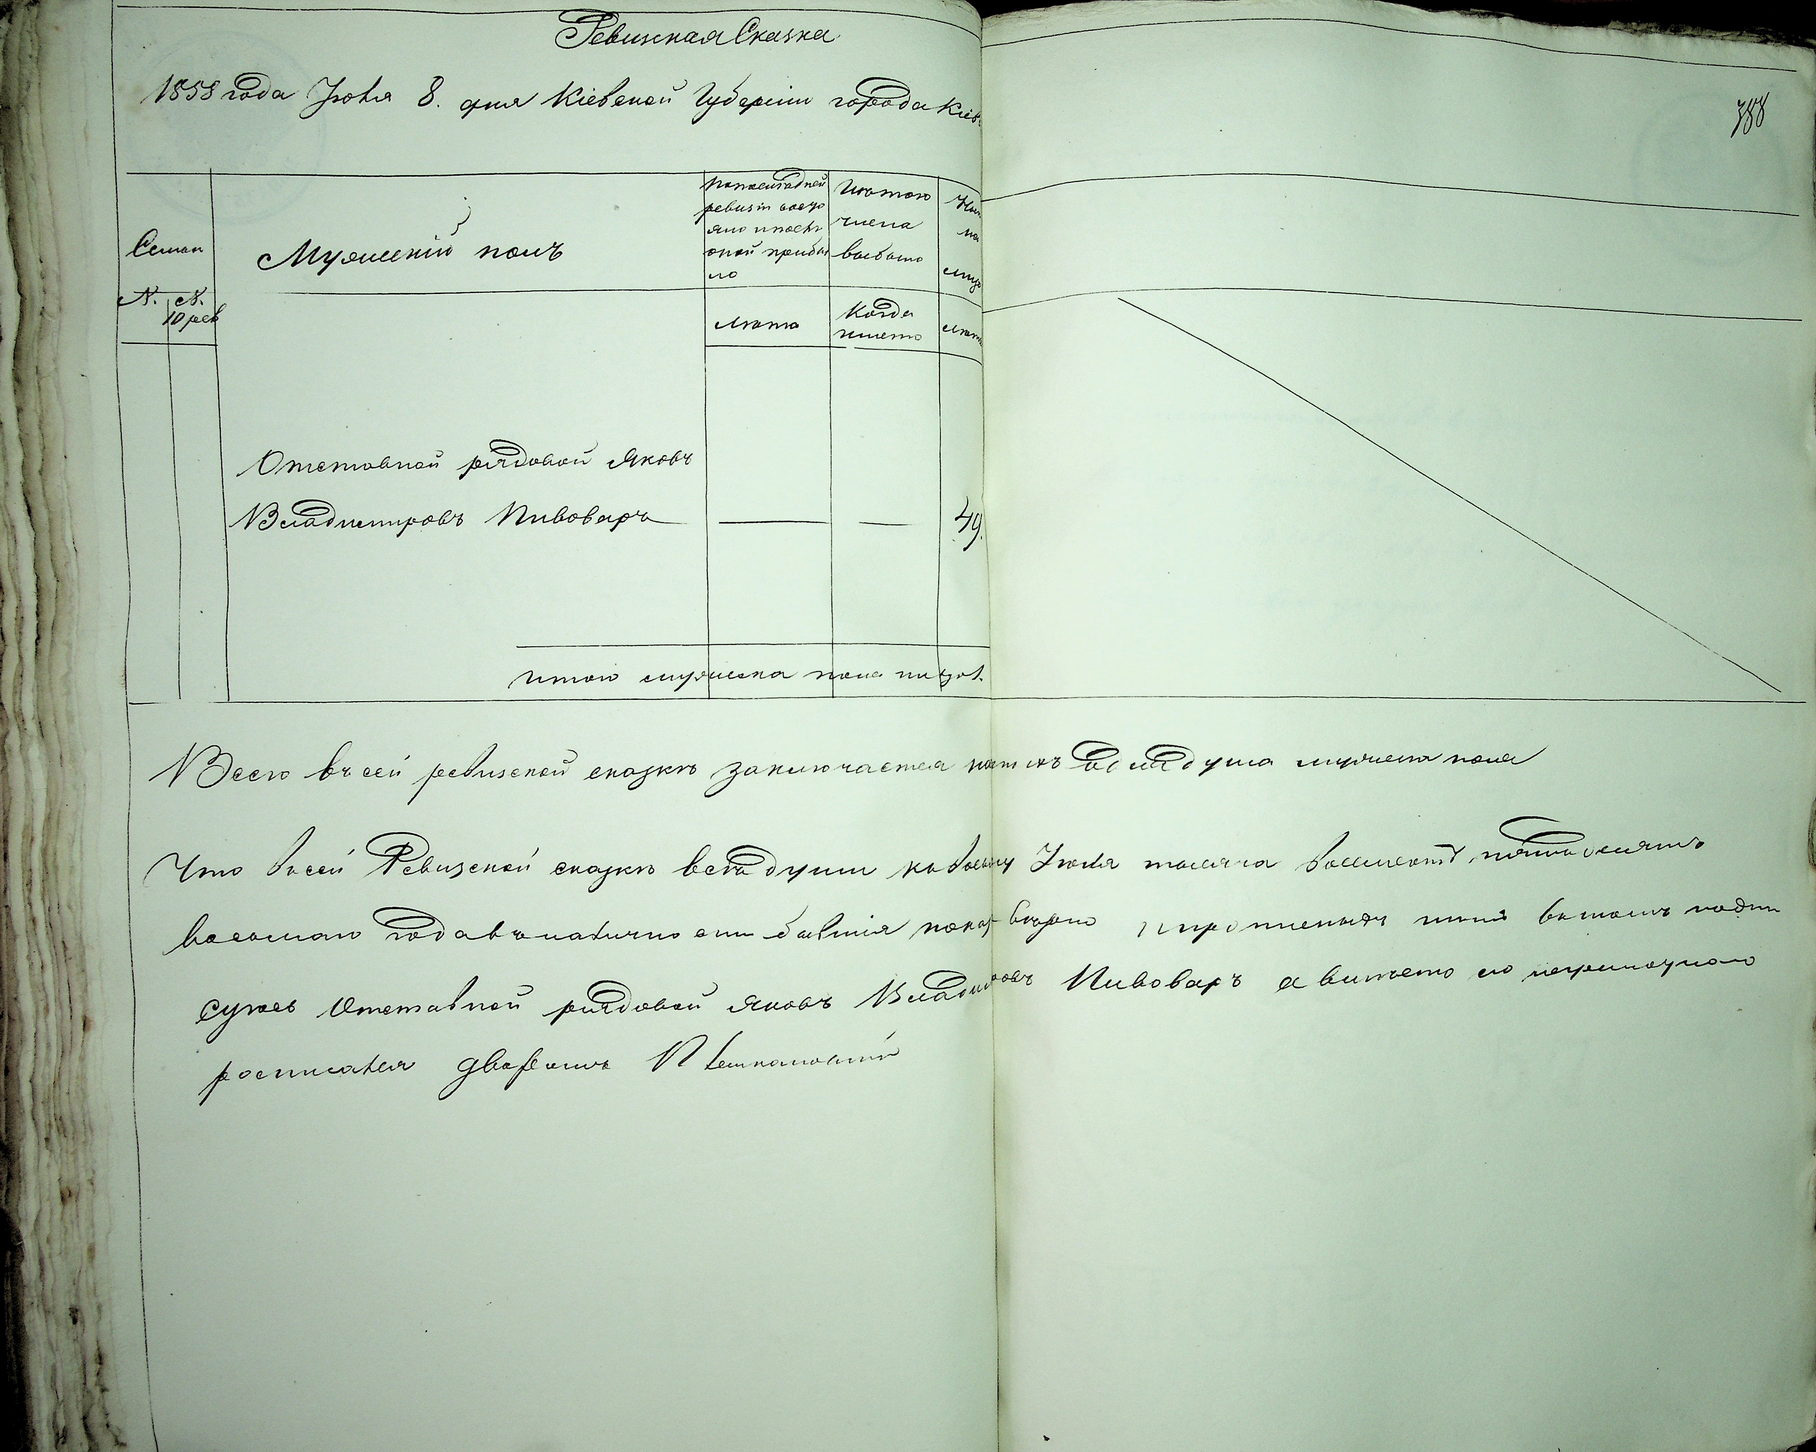 Ревизская Сказка
1858 года Июля 8. дня Кіевской Губерніи города Кіев
388
Семьи
Мужескій полъ
По последней
ревизіи состо
яло и после
оной прибы
ло
Изъ того
числа
выбыло
№. №.
10 рев
лета
Когда
именно
лета
Отставной рядовой Яковъ
Владимировъ Пивоваръ — — 49.
Итого мужеска пола на лицо 1.
Всего въ сей ревизской сказке заключается душа мужеска пола
Что въ сей Ревизской сказке все души къ восьмому Июля тысяча восемсотъ пятьдесятъ
восьмаго года въ наличности бывшія показаны и пропущенныхъ нетъ въ томъ подпи
суюсь Отставной рядовой Яковъ Владимировъ Пивоваръ а вместо его неграмотного
росписался дворянинъ